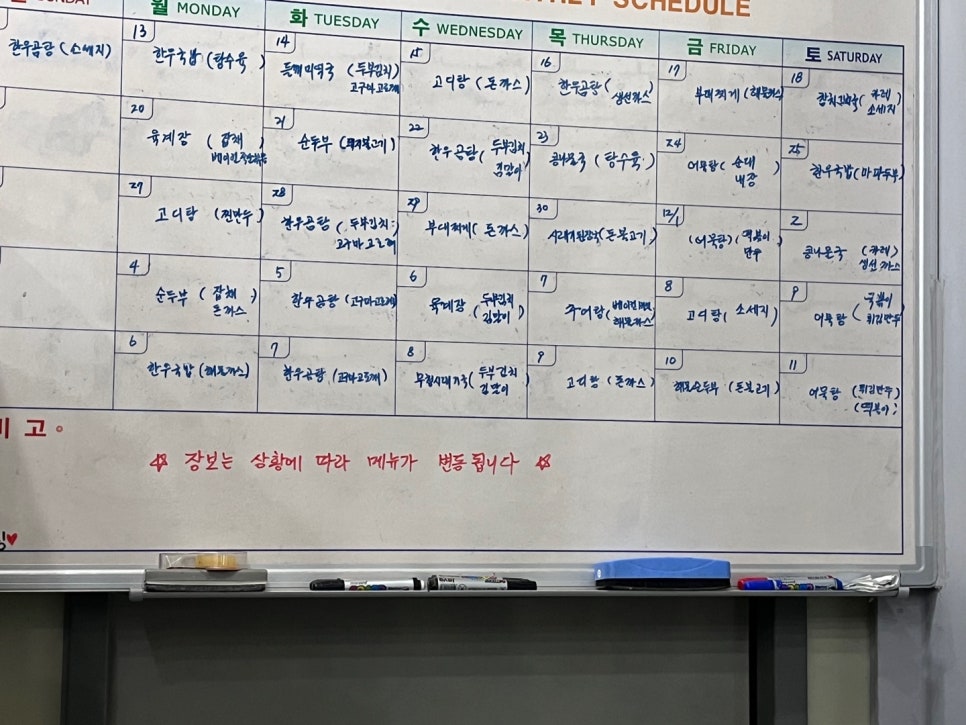 SCHEDULE
월 MONDAY
화 TUESDAY
수 WEDNESDAY
목 THURSDAY
금 FRIDAY
토 SATURDAY
한우곰탕 (소세지)
13
한우국밥 (탕수육)
14
들깨미역국 (두부김치)
고구마고로케
15
고디탕 (돈까스)
16
한우곰탕 (
생선까스)
17
부대찌개 (해물까스)
18
(카레
소세지)
20
육계장 (잡채
21
순두부 (돼지불고기)
22
한우곰탕 (두부김치
김말이)
23
콩나물국 (탕수육)
24
어묵탕 (순대
내장)
25
한우국밥 (마파두부)
27
고디탕 (찐만두)
28
한우곰탕 (두부김치
고구마고로케
29
부대찌개 (돈까스)
30
시래기된장국 (돈불고기)
12/1
(어묵탕) (떡볶이
만두)
2
콩나물국 (카레)
생선까스
4
순두부 (잡채
돈까스)
5
한우곰탕 (고구마고로케)
6
육계장 (두부김치
김말이)
7
추어탕 (
해물까스)
8
고디탕 (소세지)
9
어묵탕 (
튀김만두)
6
한우국밥 (해물까스)
7
한우곰탕 (고구마고로케)
8
(두부김치
김말이)
9
고디탕 (돈까스)
10
해물순두부 (돈불고기)
11
어묵탕 (튀김만두)
(떡볶이)
비 고
장보는 상황에 따라 메뉴가 변동됩니다